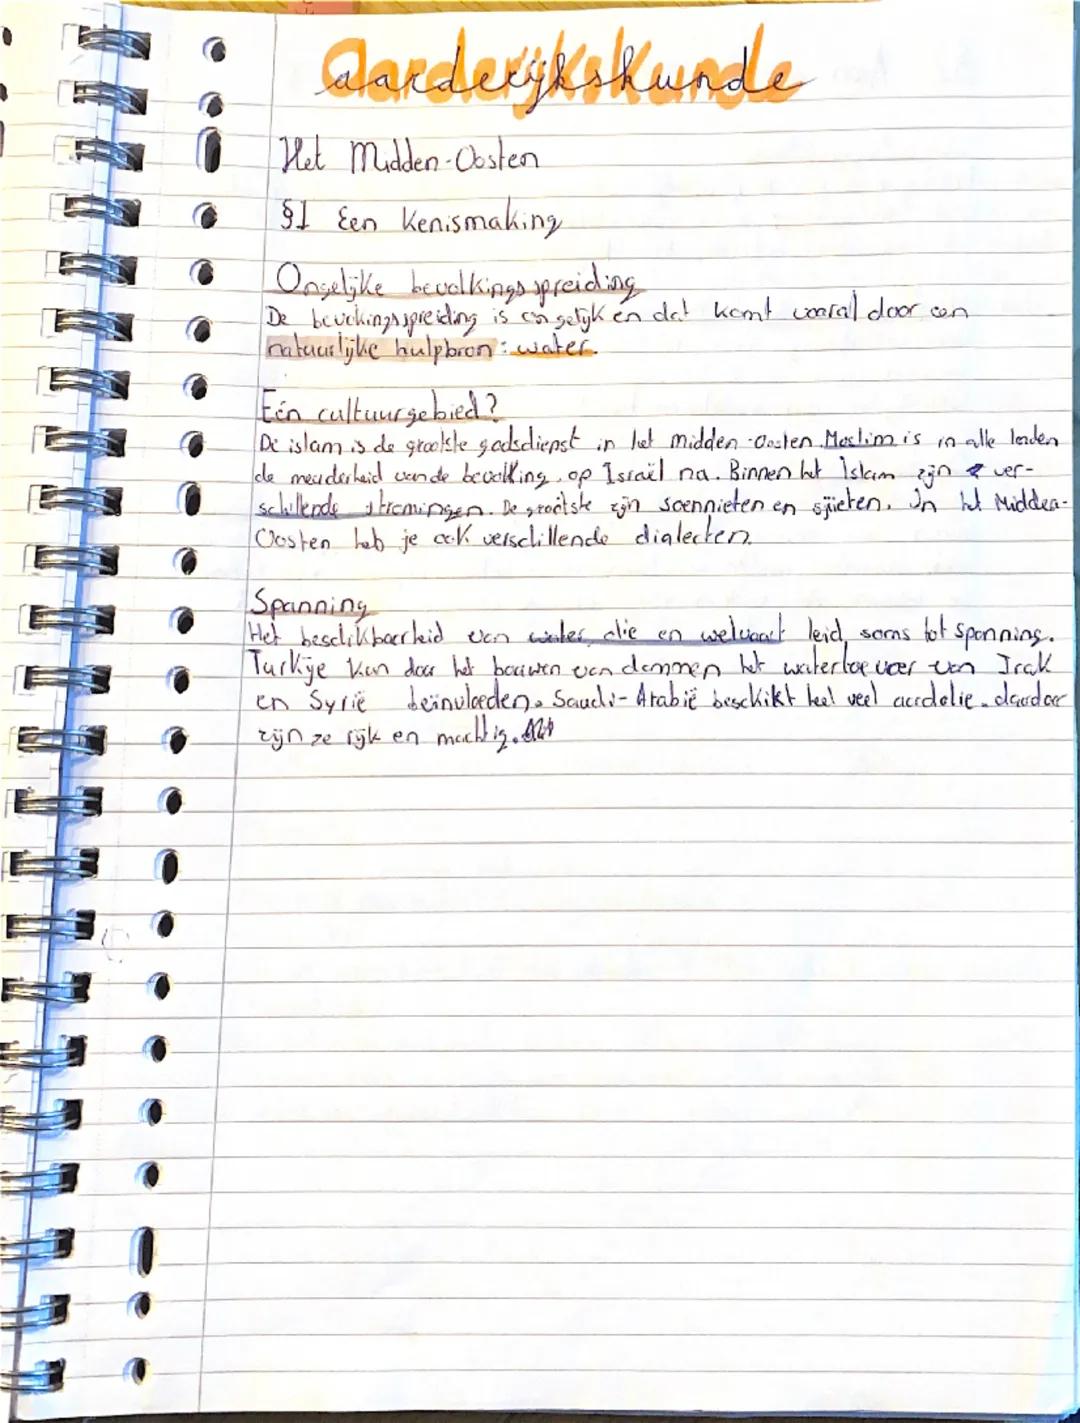 aarderijkskunde
Het Midden-Oosten
§1 Een Kenismaking
Ongelijke bevolkingsspreiding
De bevokingsspreiding is ongelijk en dat komt vooral door een
natuurlijke hulpbron: water.
Eén cultuurgebied?
De islam is de grootste godsdienst in het midden-oosten. Moslim is in alle landen
de meerderheid van de bevolking, op Israël na. Binnen het Islam zijn ver-
schillende stromingen. De grootste zijn soennieten en sjiieten. In het Midden-
Oosten heb je ook verschillende dialecten.
Spanning
Het beschikbaarheid van water, olie en welvaart leid soms tot spanning.
Turkije kan door het bouwen van dammen het watertoevoer van Irak
en Syrië beïnvloeden. Saudi-Arabië beschikt heel veel aardolie. daardoor
zijn ze rijk en machtig.